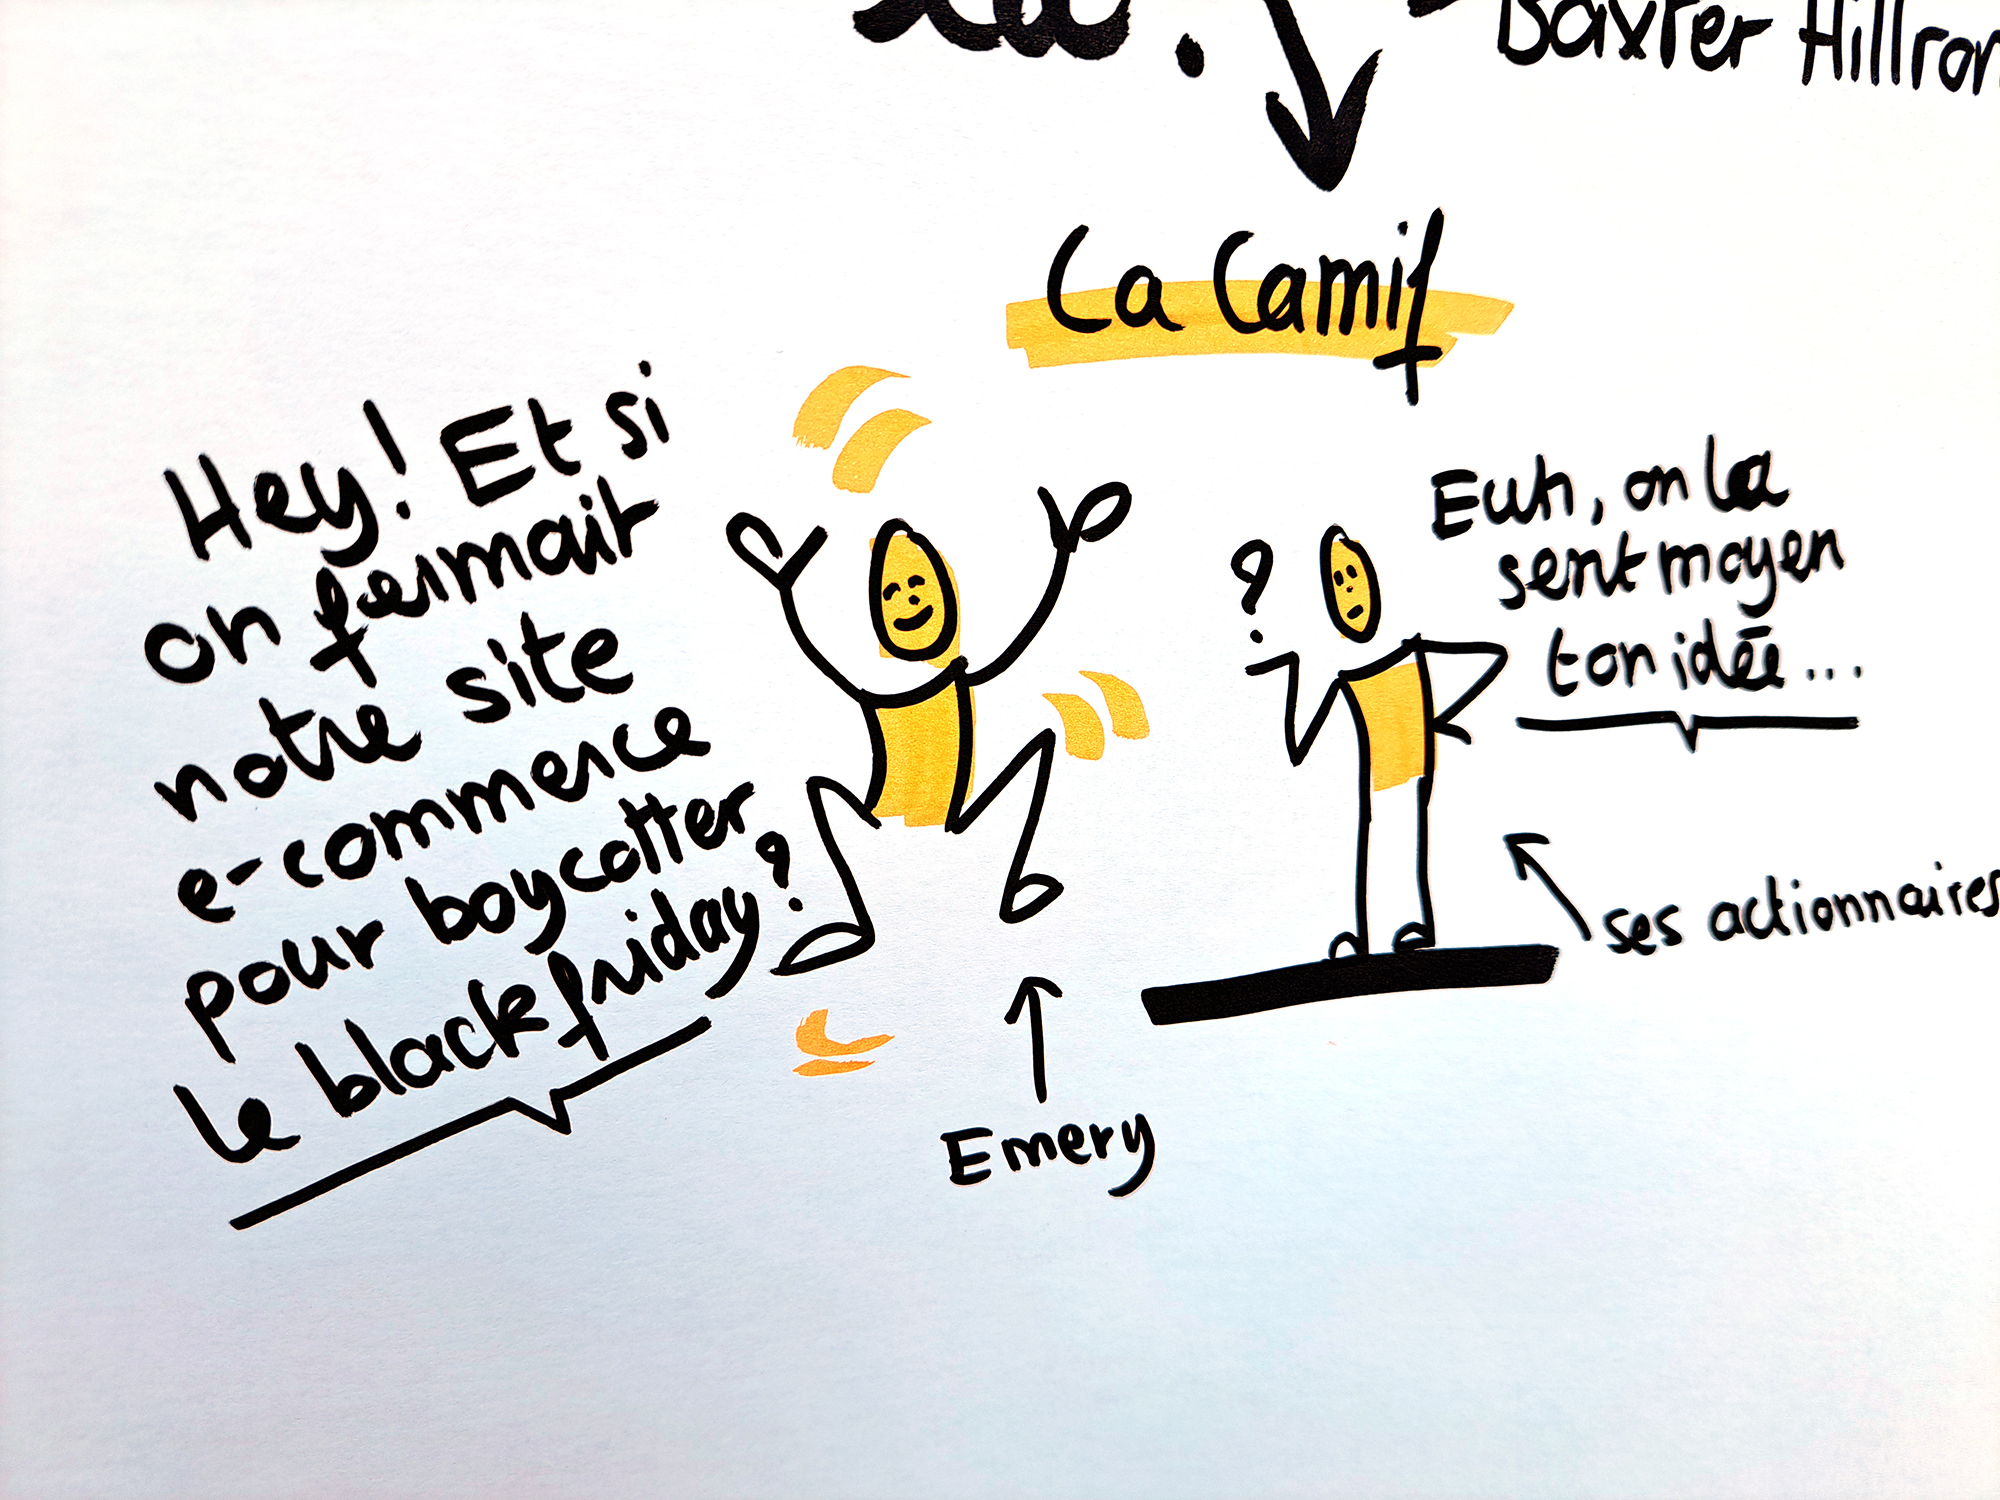 Baxter Hillrom
La Camif
Hey! Et si
on fermait
notre site
e-commerce
pour boycotter
le black friday?
Emery
?
Euh, on la
sent moyen
ton idée...
ses actionnaires